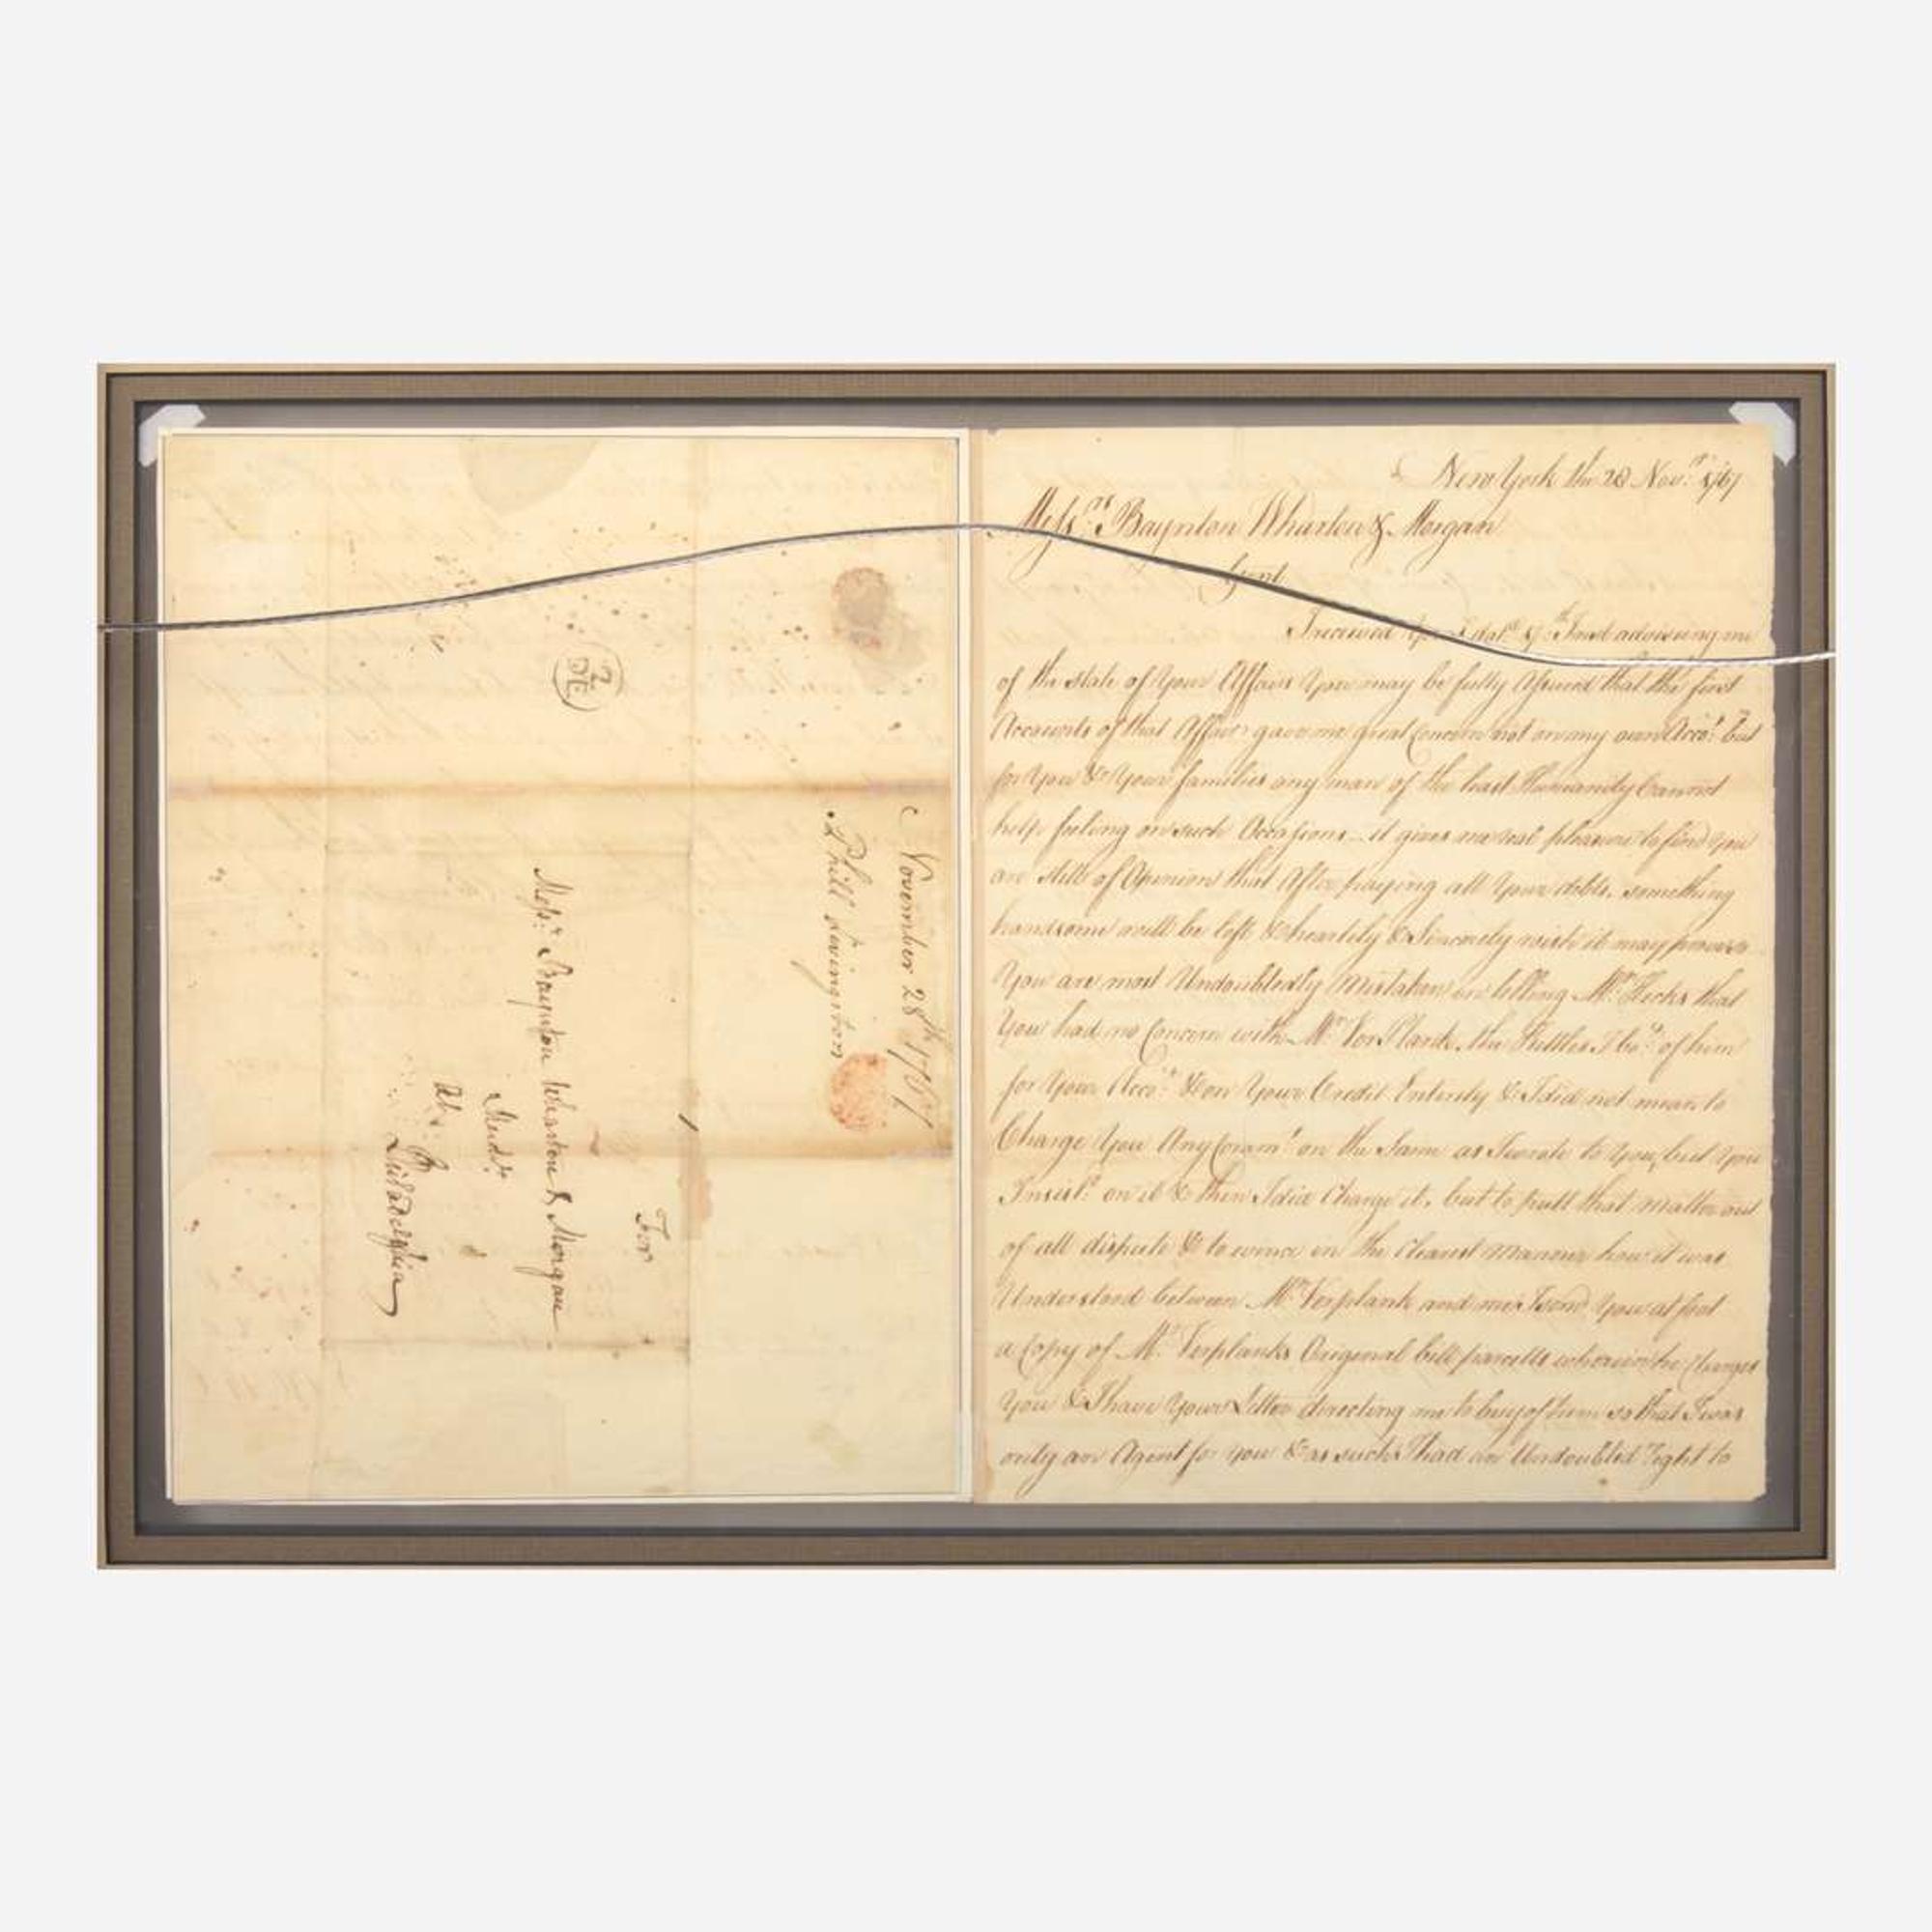 November 28th 1767
Phill Livingston
For
Messrs Baynton Wharton & Morgan
Merdts
At
Philadelphia
2
DE
New York the 28 Novr 1767
Messrs Baynton Wharton & Morgan
Gent
I received Inst adviseing me
of the state of Your Affairs You may be fully Assured that the first
Accounts of that Affair gave me great Concern not on my own Acct but
for You & Your families any man of the least Humanity Cannot
help feeling on such Occasions it gives me real pleasure to find You
are still of Opinion that After paying all Your debts something
handsome will be left & heartily & Sincerely wish it may
You are most Undoubtedly Mistaken in telling Mr Hicks that
You had no Concern with Mr VerPlank the Kettles I bot of him
for Your Acct & on Your Credit Entirely & I did not mean to
Charge You Any Comms on the Same as I wrote to You, but You
Insistd on it & then I did Charge it, but to putt that matter out
of all dispute & to evince in the Clearest Mannour how it was
Understood between Mr Verplank and me I send You at foot
a Copy of Mr Verplanks Original bill parcells wherein he Charges
You & I have Your Letter directing me to buy of him so that I was
only an Agent for You & as such I had an Undoubted Right to